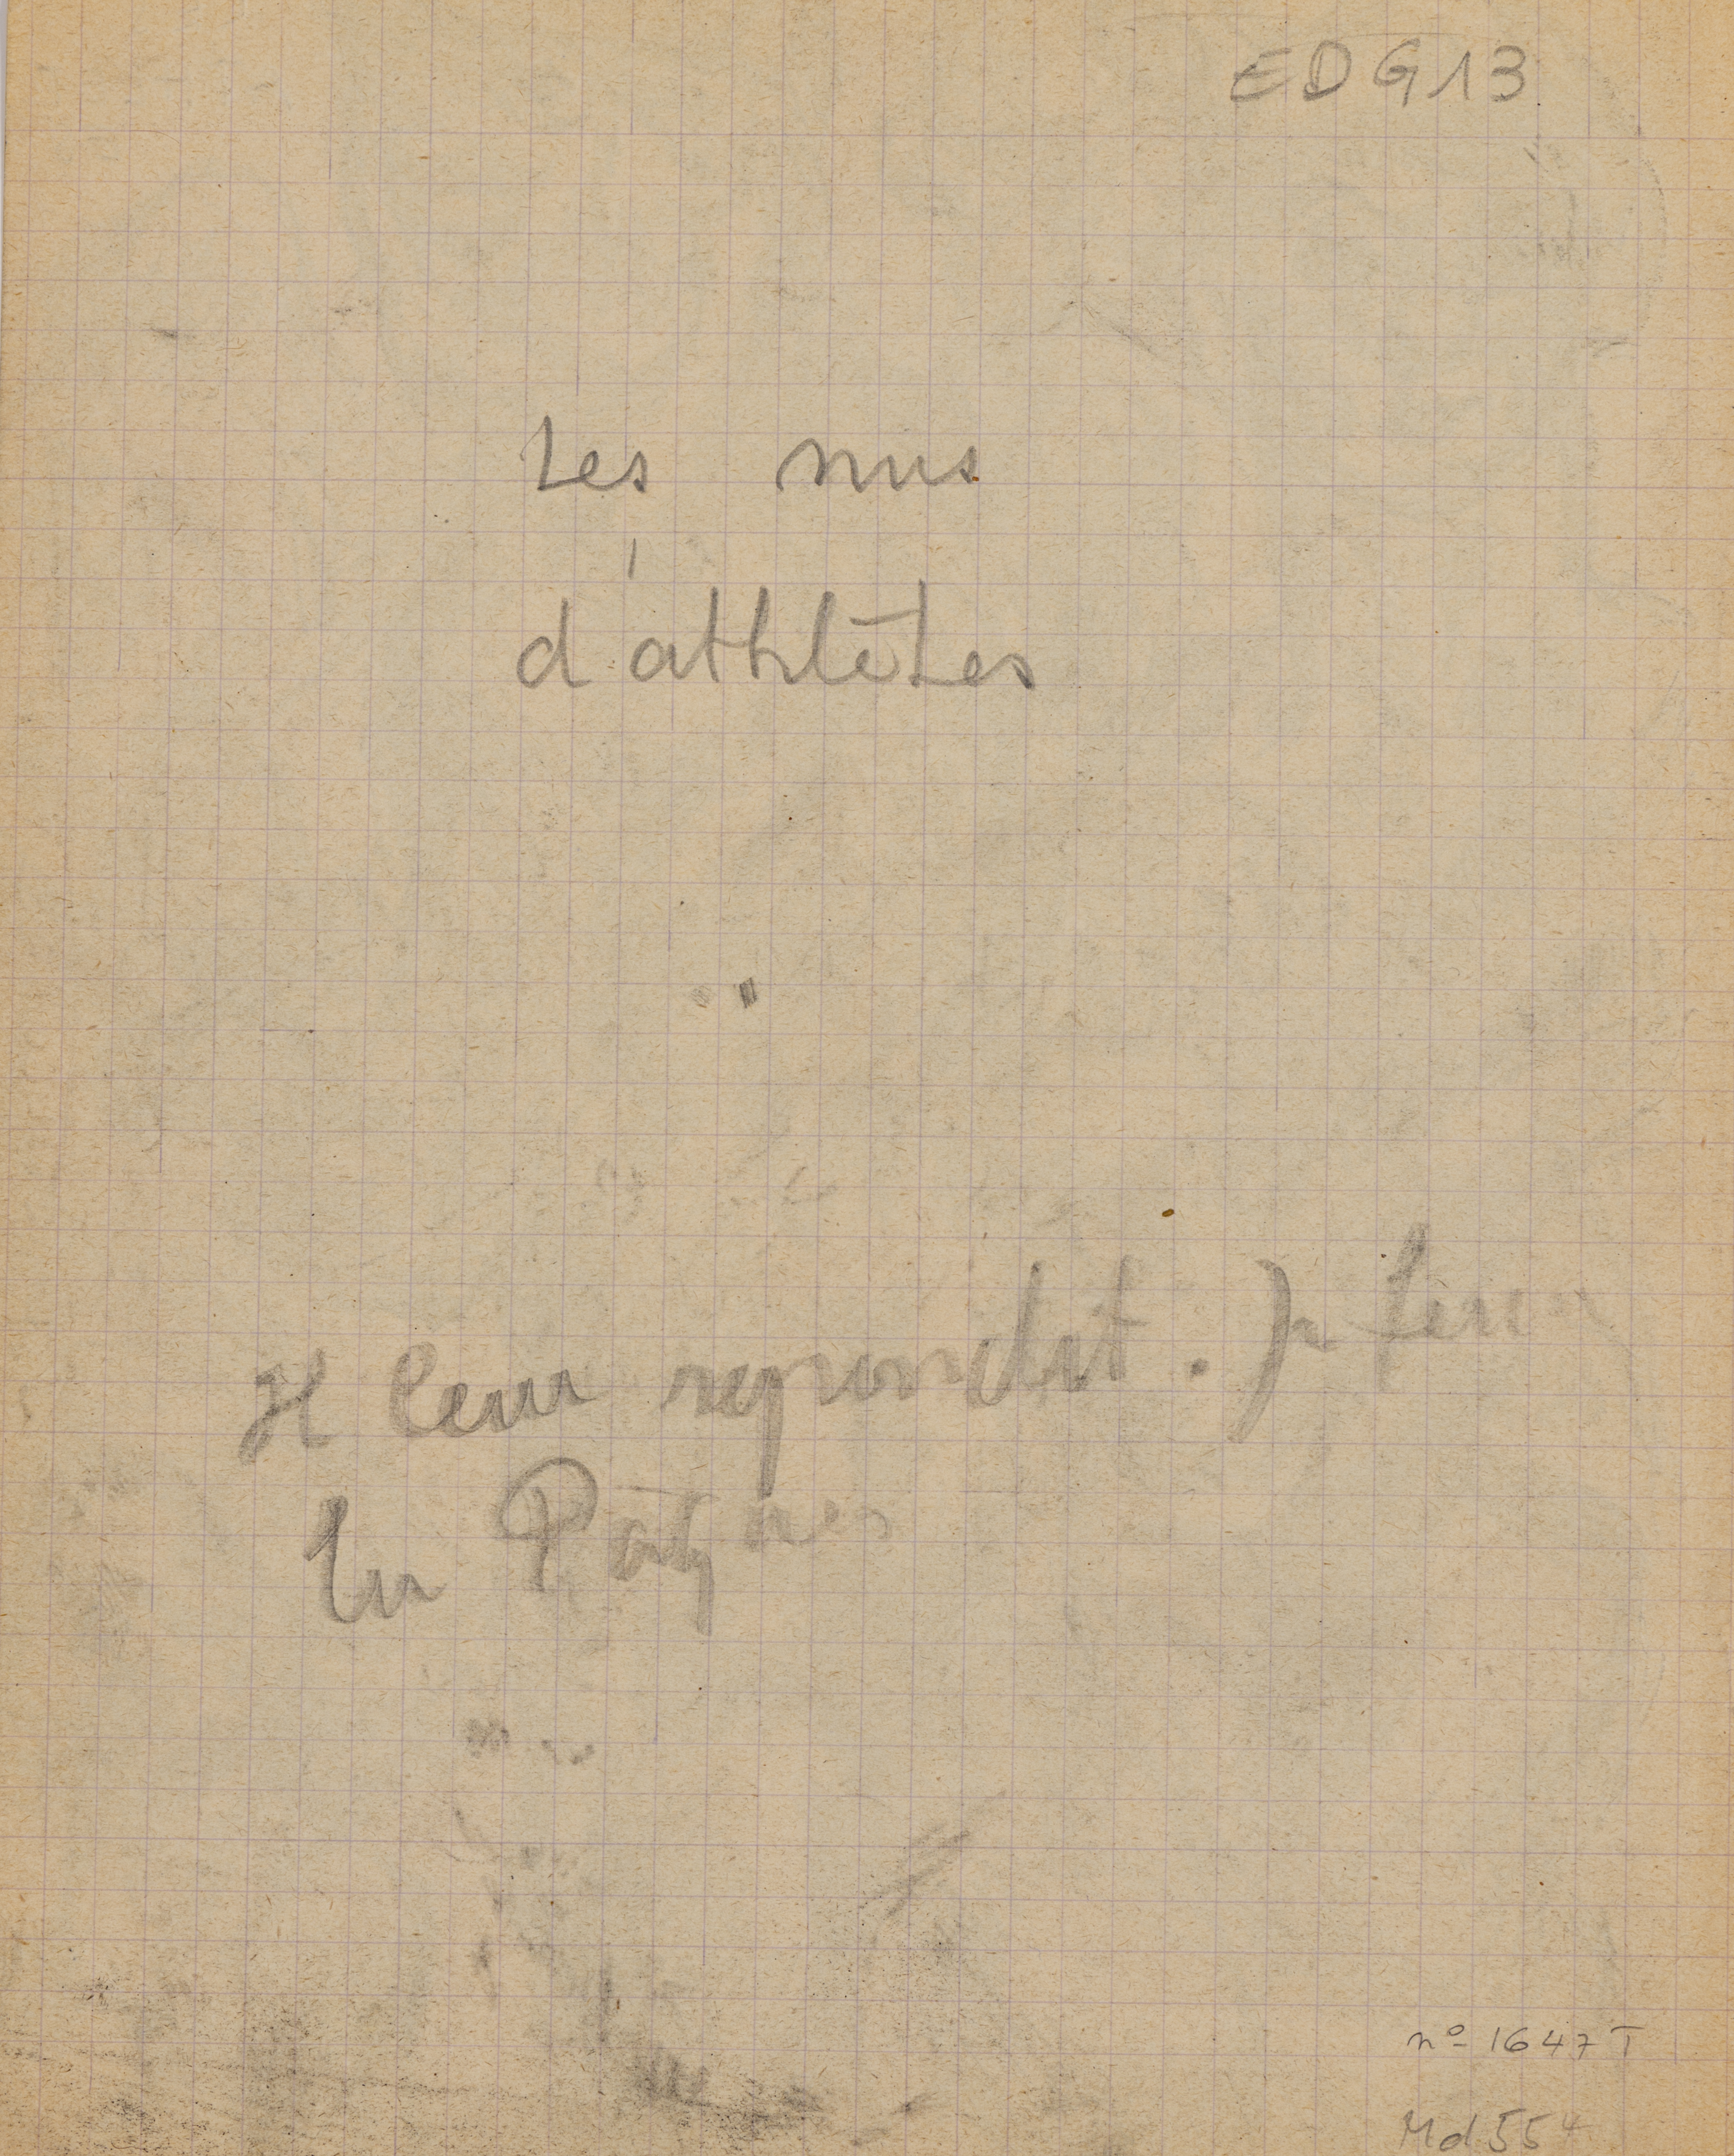 EDG13
Les nus
d'athlètes
Il leur repondit. Je ferai
les Pâques
n° 1647 T
Md 554